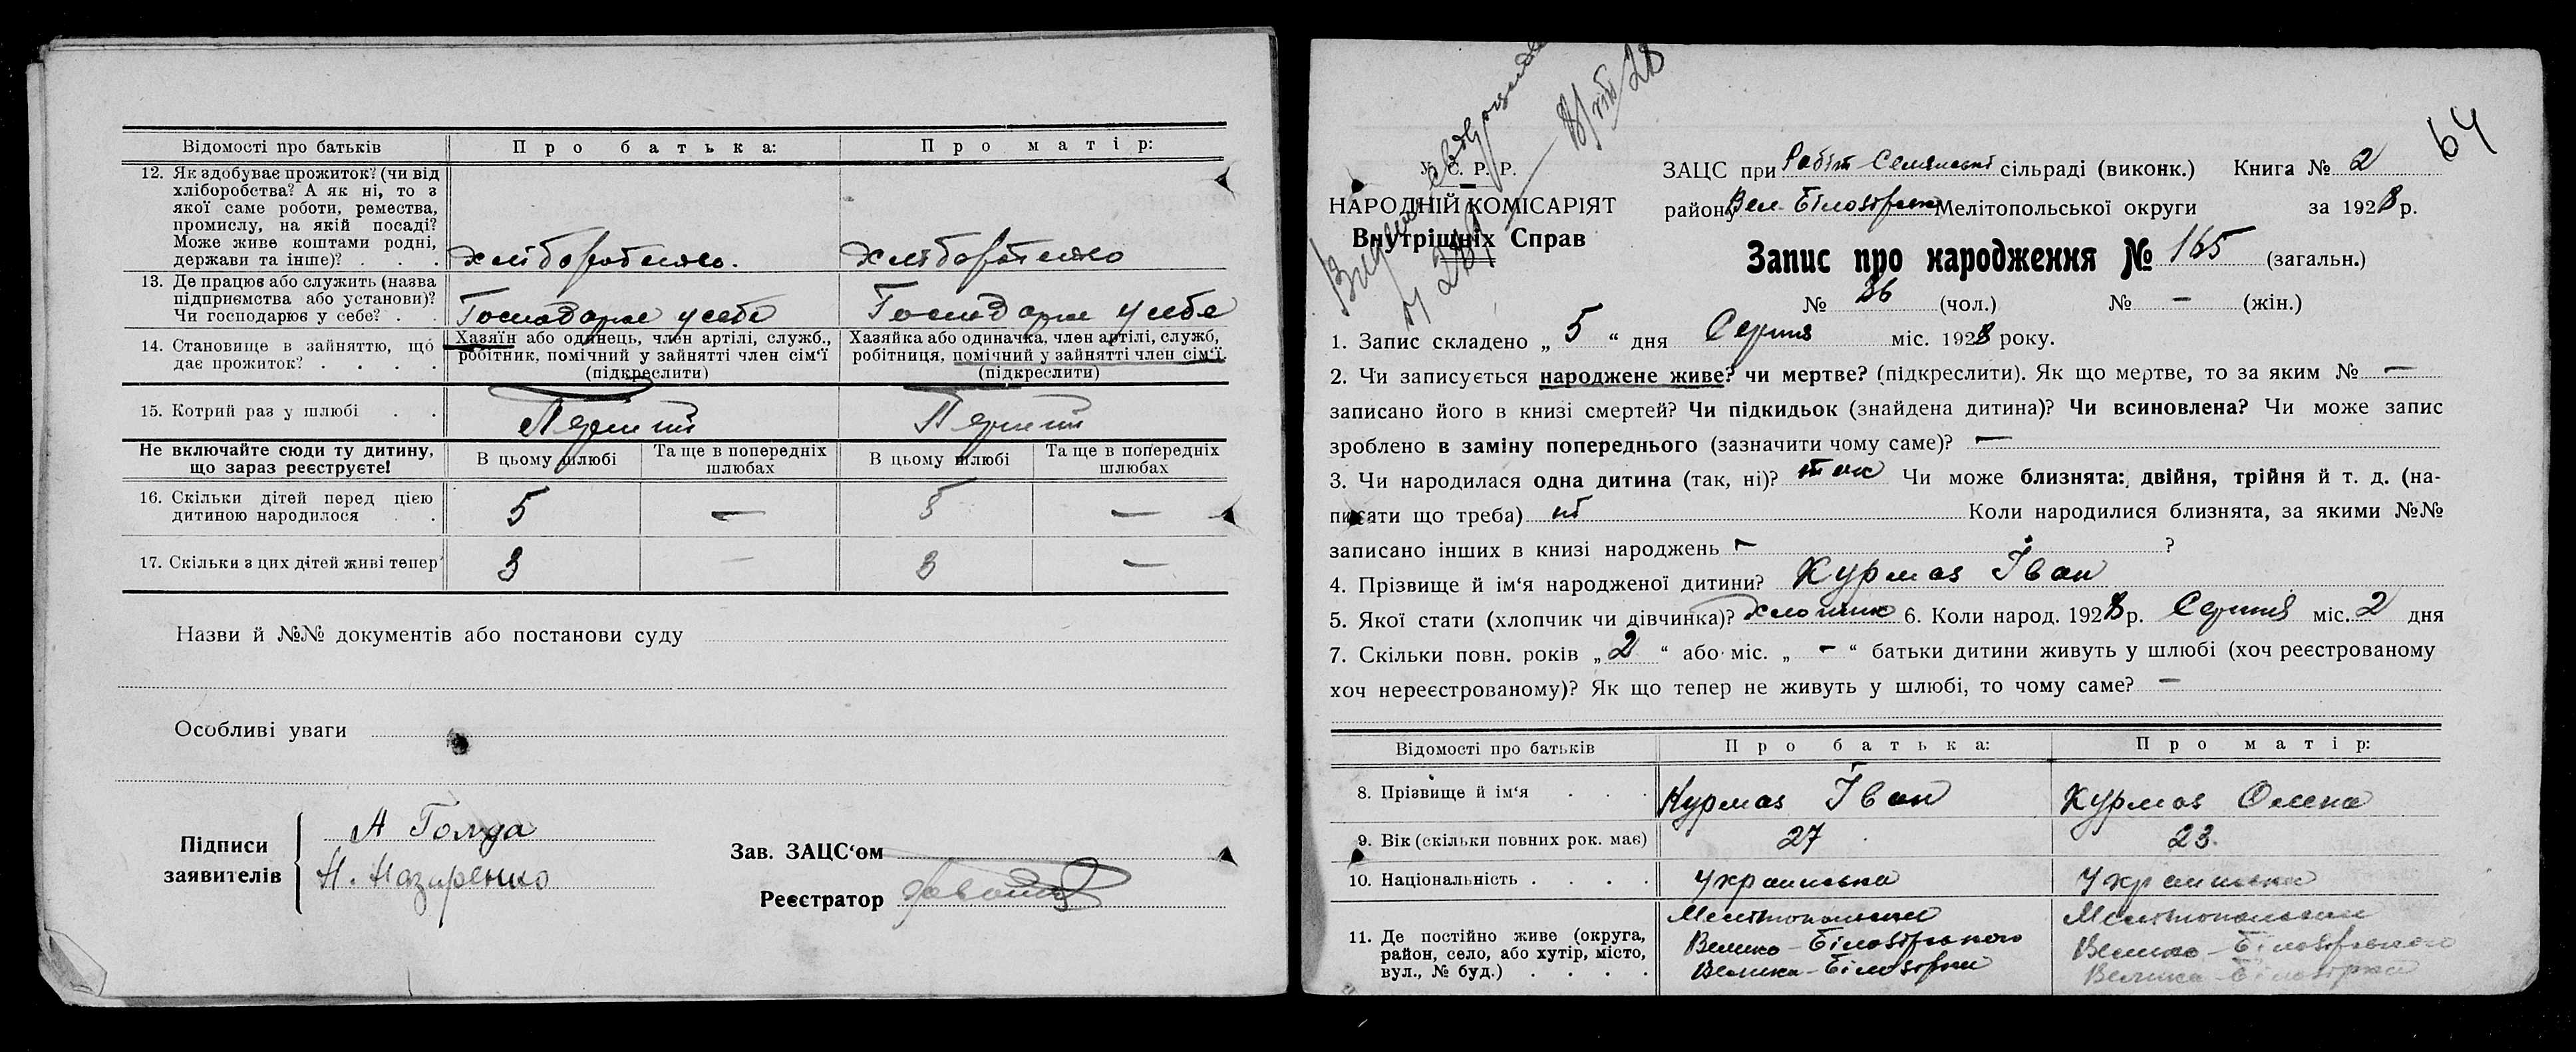 Відомості про батьків Про батька: Про матір:
12. Як здобуває прожиток? (чи від
хліборобства? А як ні, то з
якої саме роботи, ремества,
промислу, на якій посаді?
Може живе коштами родні,
держави та інше)? . . . хліборобство. хліборобство
13. Де працює або служить (назва
підприємства або установи)?
Чи господарює у себе? . . Господарює у себе Господарює у себе
14. Становище в зайняттю, що
дає прожиток? . . . .
Хазяїн або одинець, член артілі, служб.,
робітник, помічний у зайнятті член сім‘ї
(підкреслити)
Хазяйка або одиначка, член артілі, служб,
робітниця, помічний у зайнятті член сім‘ї.
(підкреслити)
15. Котрий раз у шлюбі . . Перший Перший
Не включайте сюди ту дитину,
що зараз реєструєте!
В цьому шлюбі Та ще в попередніх
шлюбах
В цьому шлюбі Та ще в попередніх
шлюбах
16. Скільки дітей перед цією
дитиною народилося . . 5 — 5 —
17. Скільки з цих дітей живі тепер 3 — 3 —
Назви й №№ документів або постанови суду
Особливі уваги
Підписи
заявителів
Н. Назаренко
Зав. ЗАЦС‘ом
Реєстратор
64
У. С. Р. Р.
НАРОДНІЙ КОМІСАРІЯТ
Внутрішніх Справ
ЗАЦС при сільраді (виконк.) Книга № 2
району Вел-Білозірка Мелітопольської округи за 1928 р.
Запис про народження № 165 (загальн.)
№ 36 (чол.) № — (жін.)
1. Запис складено „ 5 “ дня Серпня міс. 1928 року.
2. Чи записується народжене живе? чи мертве? (підкреслити). Як що мертве, то за яким № —
записано його в книзі смертей? Чи підкидьок (знайдена дитина)? Чи всиновлена? Чи може запис
зроблено в заміну попереднього (зазначити чому саме)? —
3. Чи народилася одна дитина (так, ні)? так Чи може близнята: двійня, трійня й т. д. (на-
писати що треба) ні Коли народилися близнята, за якими №№
записано інших в книзі народжень — ?
4. Прізвище й ім‘я народженої дитини? Курмаз Іван
5. Якої стати (хлопчик чи дівчинка)? хлопчик 6. Коли народ. 1928 р. Серпня міс. 2 дня
7. Скільки повн. років „ 2 “ або міс. „ — “ батьки дитини живуть у шлюбі (хоч реєстрованому
хоч нереєстрованому)? Як що тепер не живуть у шлюбі, то чому саме? —
Відомості про батьків Про батька: Про матір:
8. Прізвище й ім‘я . . . Курмаз Іван Курмаз Олена
9. Вік (скільки повних рок. має) 27 23.
10. Національність . . . . Українська Українська
11. Де постійно живе (округа,
район, село, або хутір, місто,
вул., № буд.) . . . .
Мелітопольськ
Велико-Білозірського
Велика-Білозірка
Мелітопольськ
Велико-Білозірського
Велика-Білозірка